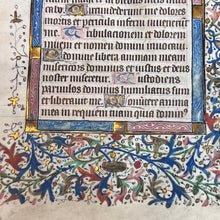 Circumdederunt me dolores
mortis et pericula inferni inuene
runt me Tribulationem et dolorem
inueni et nomen domini inuocaui
O domine libera animam meam
misericors dominus et iustus et deus
noster miseretur Custodiens
paruulos dominus humiliatus sum
et liberauit me Conuertere anima
mea in requiem tuam quia domi